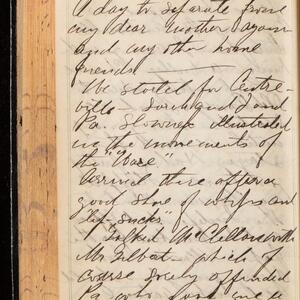 A day to separate from
my dear Mother again
and my other home
friends
We started for Centre-
ville - Losing and I and
Pa. Slowness illustrated
in the movements of
the "Ware"
Arrived there after a
good share of whips and
"Get-sucks"
Talked McClellan with
Mr Gilbert - which of
course sorely offended
Pa who